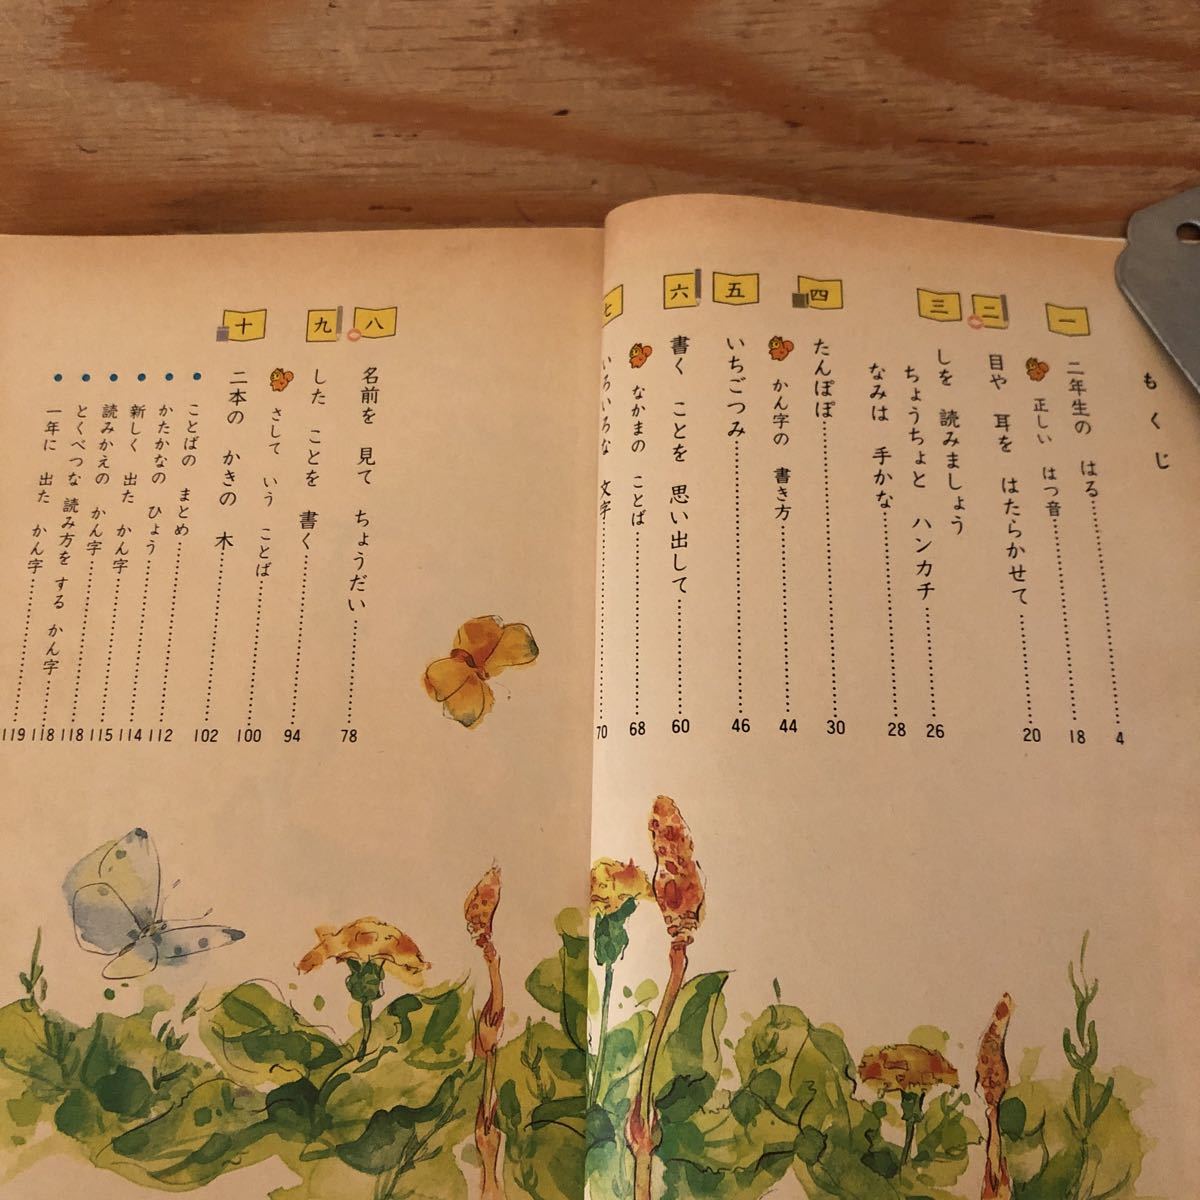 もくじ
一 二年生の はる……4
正しい はつ音……18
二 目や 耳を はたらかせて……20
三 しを 読みましょう
ちょうちょと ハンカチ……26
なみは 手かな……28
四 たんぽぽ……30
かん字の 書き方……44
五 いちごつみ……46
六 書く ことを 思い出して……60
なかまの ことば……68
七 いろいろな 文字……70
八 名前を 見て ちょうだい……78
九 した ことを 書く……94
さして いう ことば……100
十 二本の かきの 木……102
ことばの まとめ……112
かたかなの ひょう……114
新しく 出た かん字……115
読みかえの かん字……118
とくべつな 読み方を する かん字……118
一年に 出た かん字……119